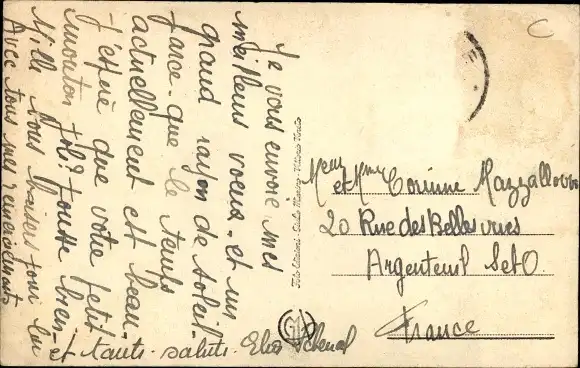 Je vous envoie mes
meilleurs voeux et un
grand rayon de soleil.
parce que le temps
actuellement est beau.
J'espère que votre petit
mouton joli? tousse bien
Mille vous baisers pour lui
Avec tous mes remerciements
et tants saluts. Elios
Meur et Mme Corinne Mazzallovo
20 Rue des Belles vues
Argenteuil Set O.
France
C